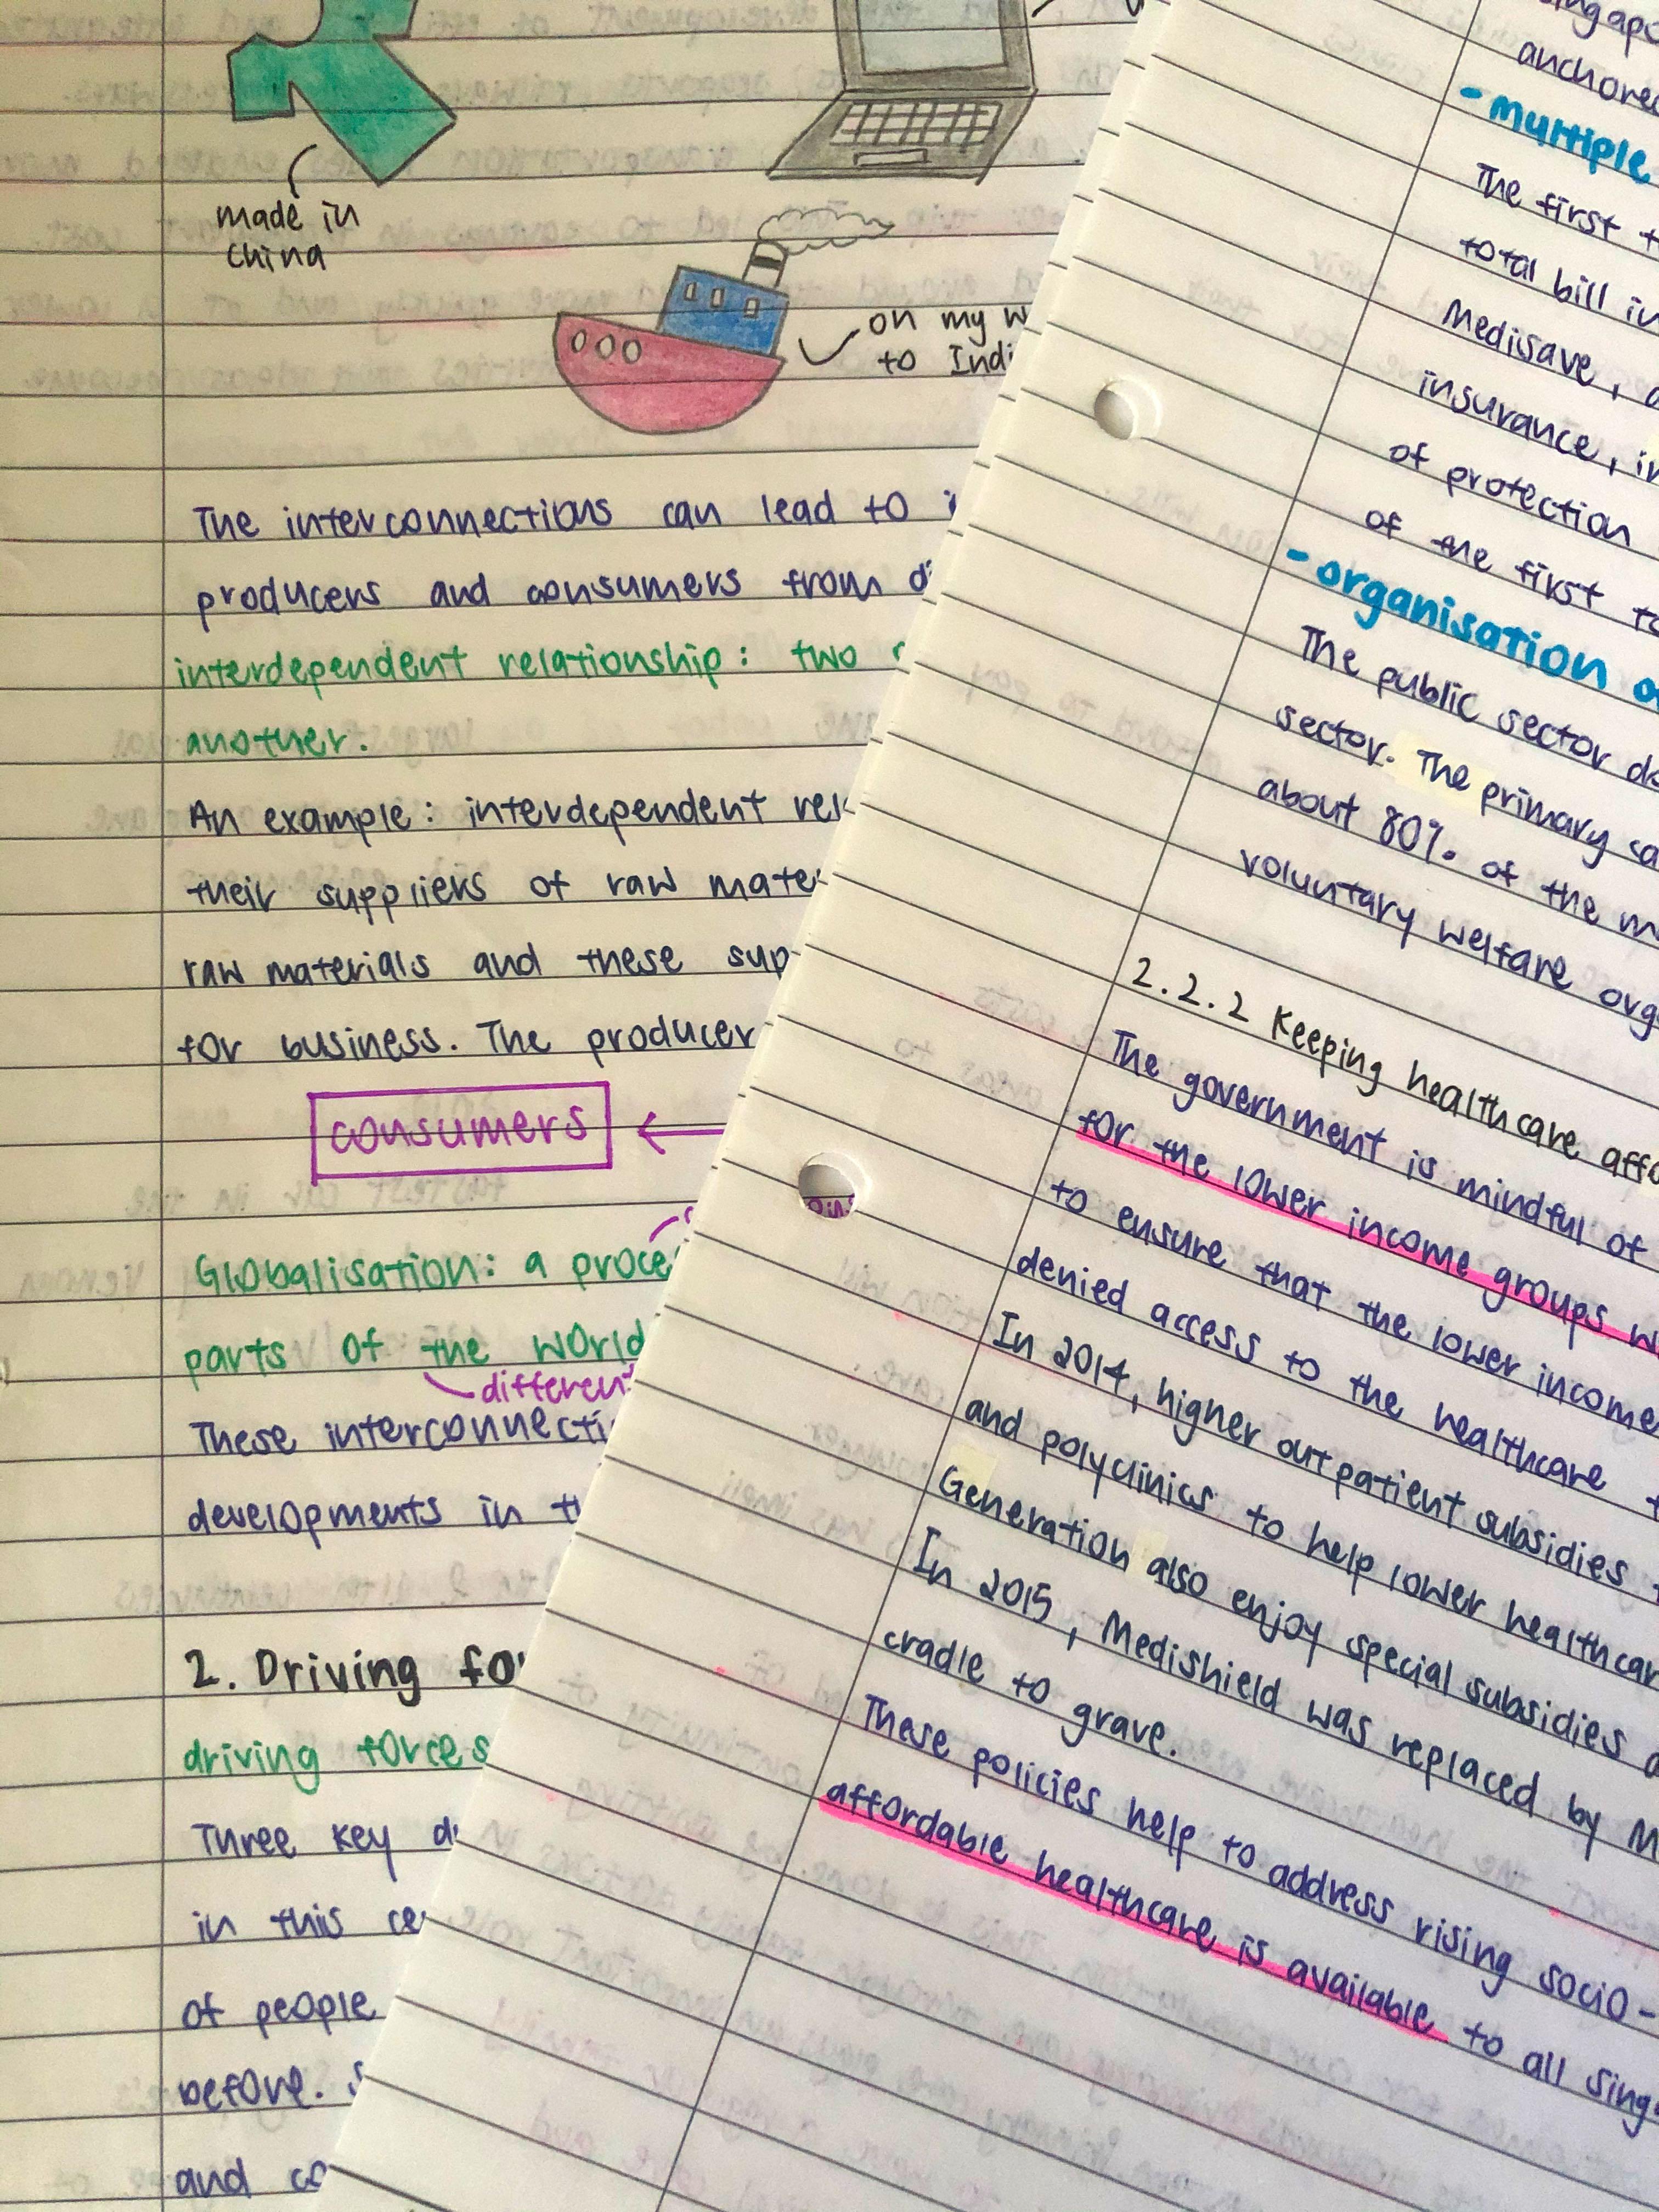 made in
china
on my
to
The interconnections can lead to
producers and consumers from
interdependent relationship: two
another.
An example: interdependent
their suppliers of raw
raw materials and these
for business. The producer
consumers
Globalisation: a
parts of the world
different
These
developments in
2. Driving
driving forces
Three key
in this
of people
before.
and
- multiple
The first
total bill
Medisave,
insurance,
of protection
of the first
- organisation
The public sector
sector. The primary
about 80% of the
voluntary welfare
2.2.2 Keeping healthcare
The government is mindful of
for the lower income groups
to ensure that the lower income
denied access to the healthcare
In 2014, higher outpatient subsidies
and polyclinics to help lower
Generation also enjoy special subsidies
In 2015, Medishield was replaced by
cradle to grave.
These policies help to address rising socio-
affordable healthcare is available to all